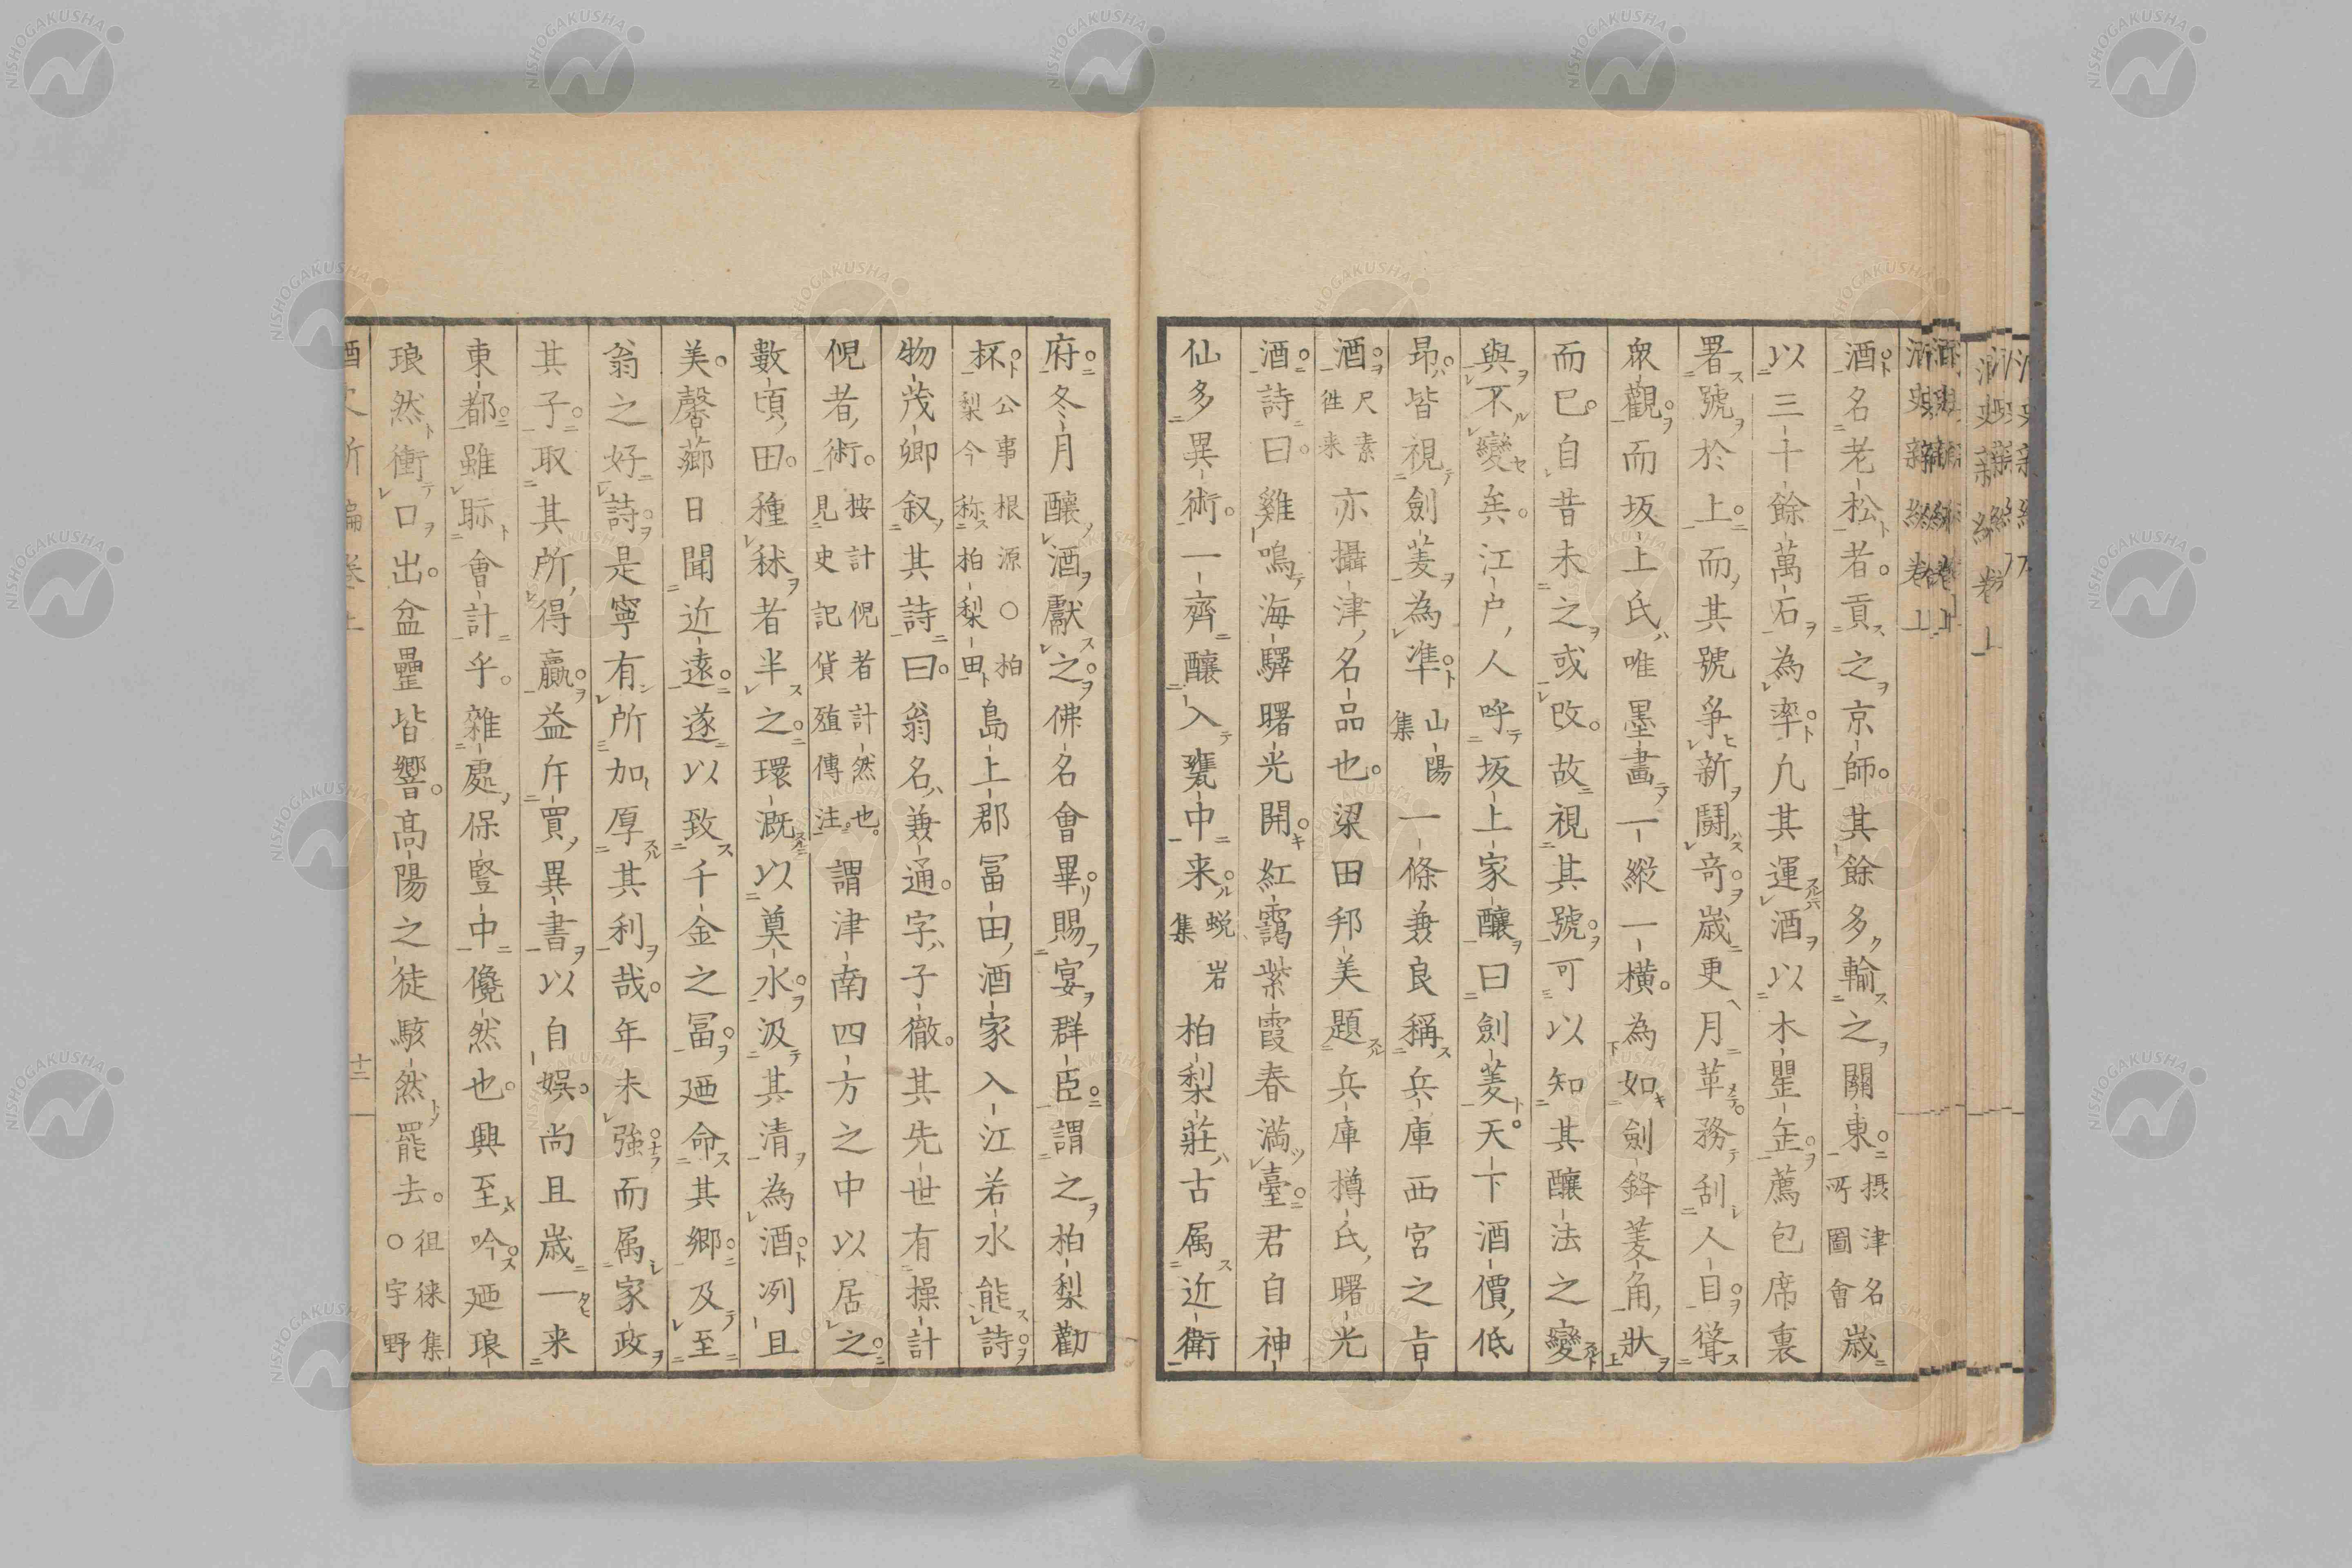 酒名老松者。貢之京師。其餘多輸之關東。摂津名所圖會歳
以三十餘萬石為率。凢其運酒以木罌缶。薦包席裏
署號於上。而其號爭新鬪奇。歳更月革。務刮人目。聳
衆觀。而坂上氏唯墨畫一縱一横。為如劍鋒菱角狀
而已。自昔未之或改。故視其號。可以知其釀法之變
與不變矣。江戸人呼坂上家釀曰劍菱。天下酒價低
昂。皆視劍菱為準。山陽集一條兼良稱兵庫西宮之旨
酒。尺素徃来亦攝津名品也。梁田邦美題兵庫樽氏曙光
酒詩曰。雞鳴海驛曙光開。紅靄紫霞春満臺。君自神
仙多異術。一齊釀入甕中来。蛻岩集柏梨莊古属近衛
府。冬月釀酒獻之。佛名會畢。賜宴群臣。謂之柏梨勸
杯。公事根源○柏梨今称柏梨田島上郡冨田酒家入江若水能詩。
物茂卿叙其詩曰。翁名兼通。字子徹。其先世有操計
倪者術。按計倪者計然也。見史記貨殖傳注。謂津南四方之中以居之。
數頃田。種秫者半之。環溉以奠水。汲其清為酒。冽且
美。馨薌日聞近遠。遂以致千金之冨。廼命其鄉。及至
翁之好詩。是寧有所加厚其利哉。年未強。而属家政
其子。取其所得贏。益斥買異書。以自娯。尚且歳一来
東都。雖眎會計乎。雜處保豎中儳然也。興至吟。廼琅
琅然衝口出。盆罍皆響。高陽之徒駭然罷去。徂徠集○字野
十二